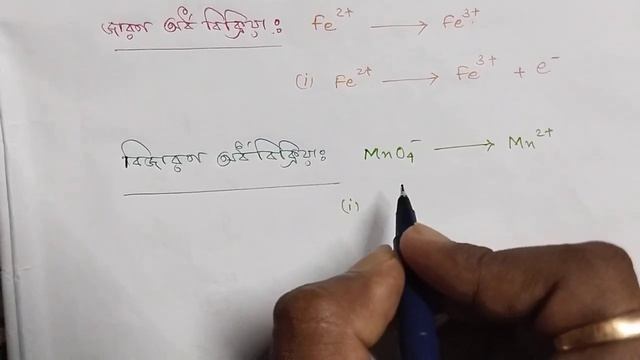 জারণ অর্ধ বিক্রিয়াঃ Fe²⁺ ⟶ Fe³⁺
(i) Fe²⁺ ⟶ Fe³⁺ + e⁻
বিজারণ অর্ধবিক্রিয়াঃ MnO₄⁻ ⟶ Mn²⁺
(i)